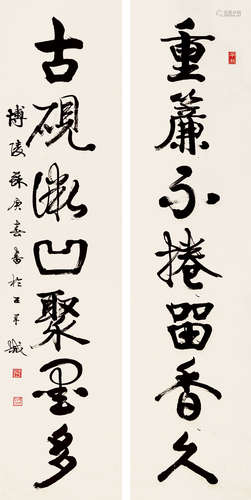 重簾不捲留香久
古硯微凹聚墨多
博陵蘇庚春書於